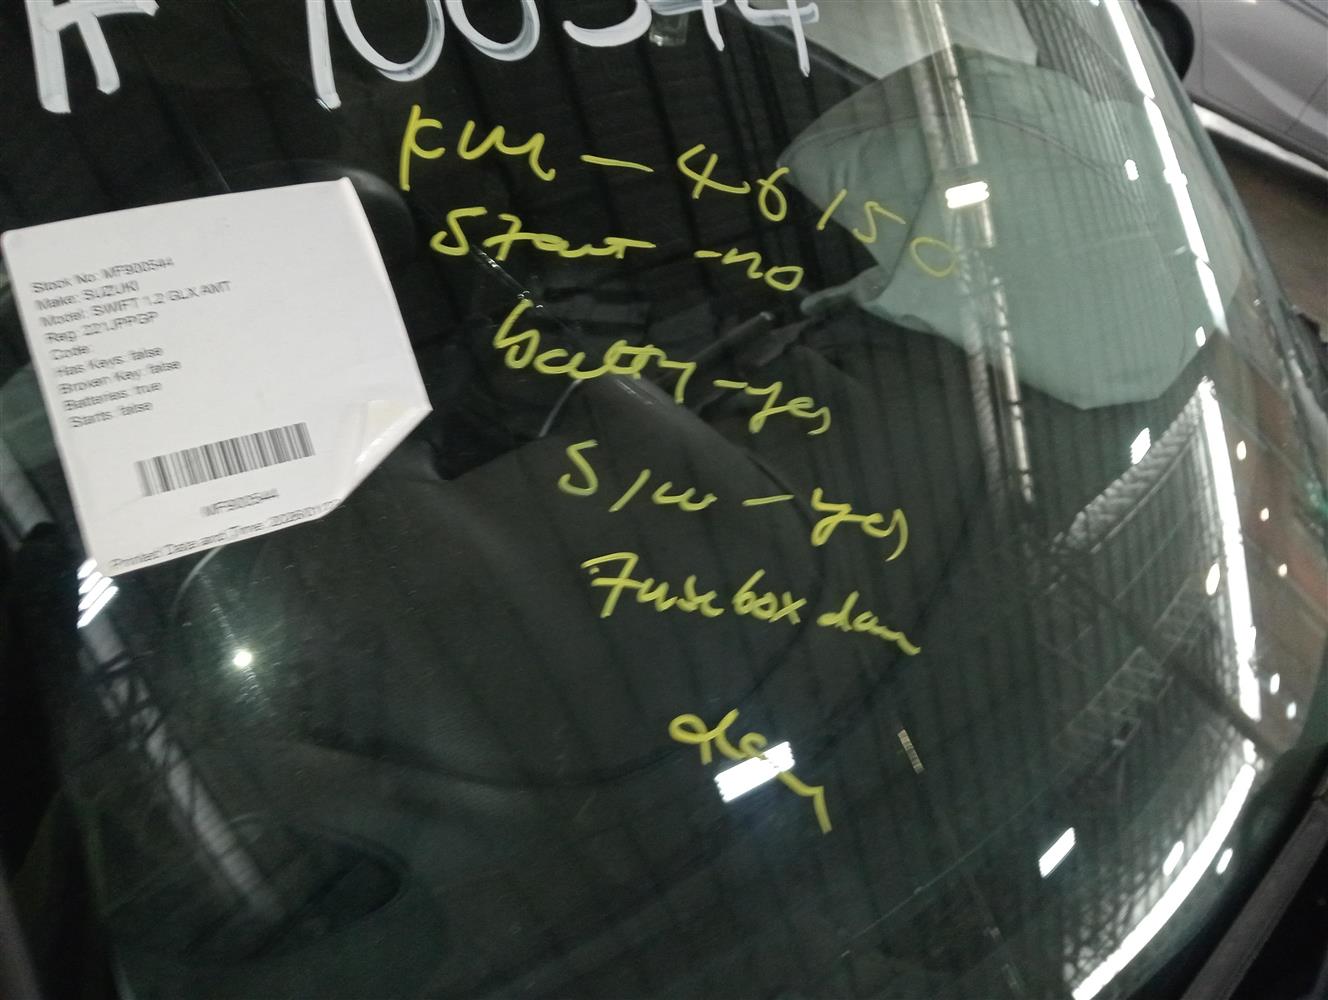 KM - 46150
Start - no
batty - yes
S/W - yes
Fusebox dam
Stock No: MF900544
Make: SUZUKI
Model: SWIFT 1.2 GLX AMT
Reg: 221JPPGP
Code:
Has Keys: false
Broken Key: false
Batteries: true
Starts: false
MF900544
Printed Date and Time: